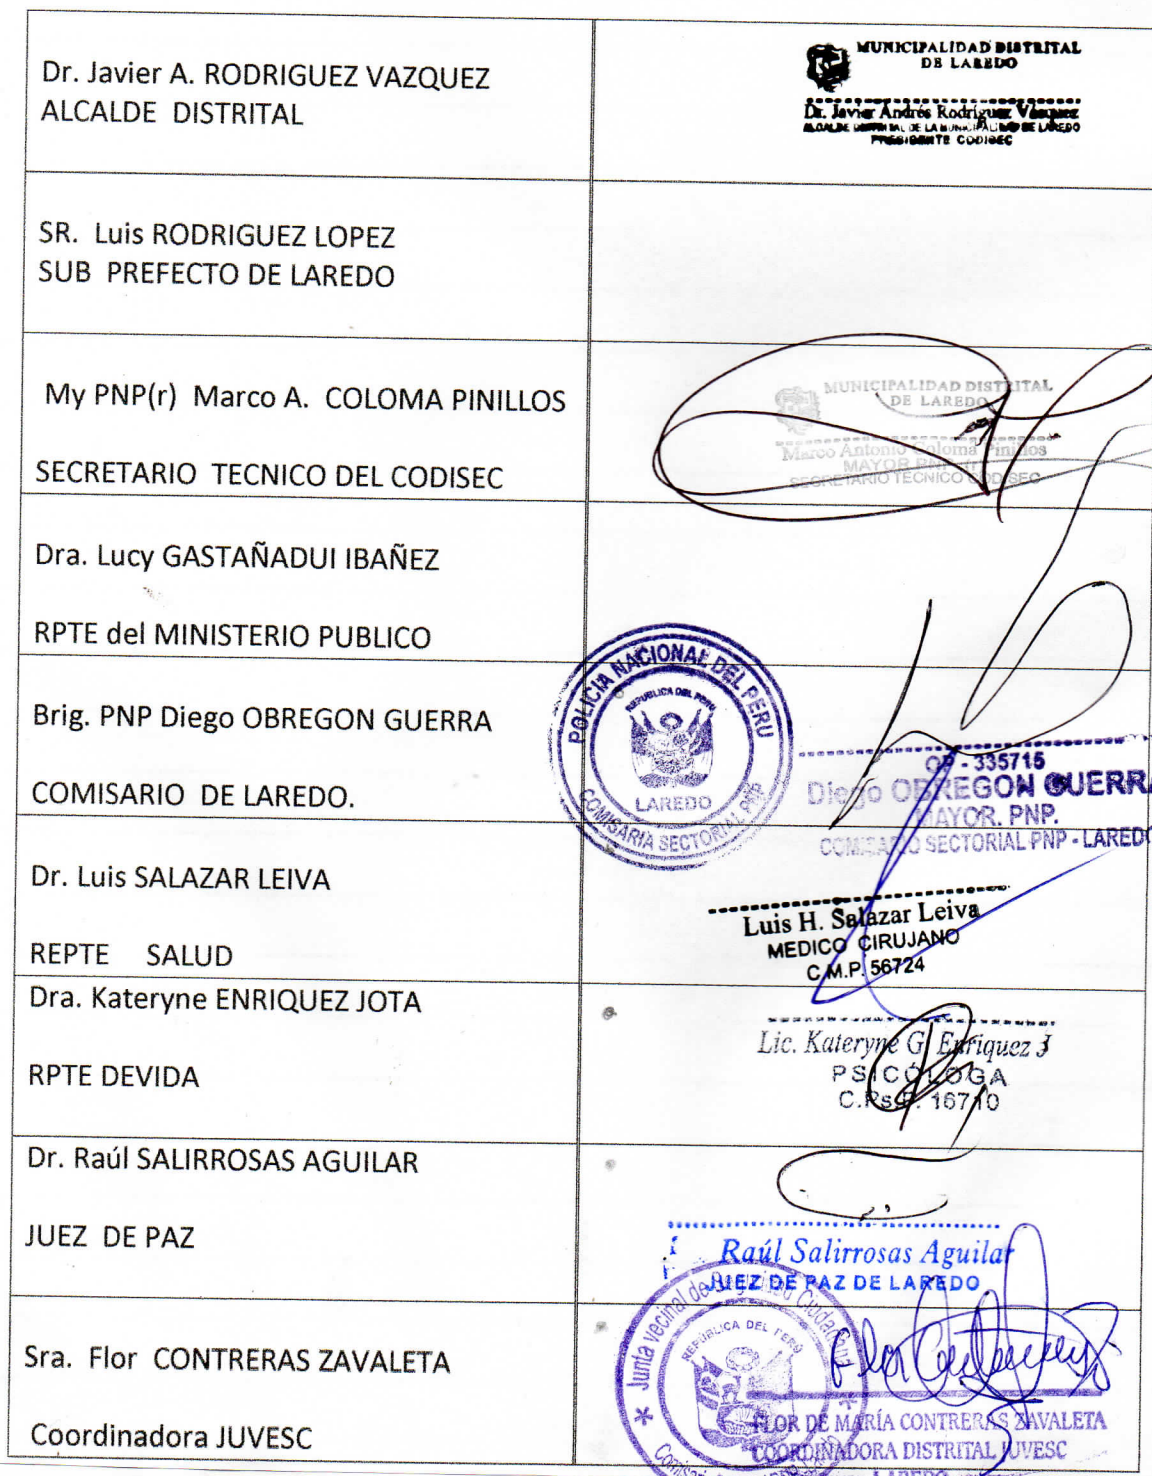 Dr. Javier A. RODRIGUEZ VAZQUEZ
ALCALDE DISTRITAL
MUNICIPALIDAD DISTRITAL
DE LAREDO
Dr. Javier Andrés Rodríguez Vásquez
ALCALDE DISTRITAL DE LA MUNICIPALIDAD DE LAREDO
PRESIDENTE CODISEC
SR. Luis RODRIGUEZ LOPEZ
SUB PREFECTO DE LAREDO
My PNP(r) Marco A. COLOMA PINILLOS
SECRETARIO TECNICO DEL CODISEC
MUNICIPALIDAD DISTRITAL
DE LAREDO
Marco Antonio Coloma Pinillos
MAYOR PNP (r)
SECRETARIO TECNICO CODISEC
Dra. Lucy GASTAÑADUI IBAÑEZ
RPTE del MINISTERIO PUBLICO
Brig. PNP Diego OBREGON GUERRA
COMISARIO DE LAREDO.
POLICIA NACIONAL DEL PERU
REPUBLICA DEL PERU
LAREDO
COMISARIA SECTORIAL PNP
OP - 335715
Diego OBREGON GUERRA
MAYOR. PNP.
COMISARIO SECTORIAL PNP - LAREDO
Dr. Luis SALAZAR LEIVA
REPTE SALUD
Luis H. Salazar Leiva
MEDICO CIRUJANO
C.M.P. 56724
Dra. Kateryne ENRIQUEZ JOTA
RPTE DEVIDA
Lic. Kateryne G. Enriquez J
PSICÓLOGA
C.Ps.P. 16710
Dr. Raúl SALIRROSAS AGUILAR
JUEZ DE PAZ
Raúl Salirrosas Aguilar
JUEZ DE PAZ DE LAREDO
Sra. Flor CONTRERAS ZAVALETA
Coordinadora JUVESC
Junta Vecinal de Seguridad Ciudadana
REPÚBLICA DEL PERÚ
Flor Contreras
FLOR DE MARÍA CONTRERAS ZAVALETA
COORDINADORA DISTRITAL JUVESC
LAREDO